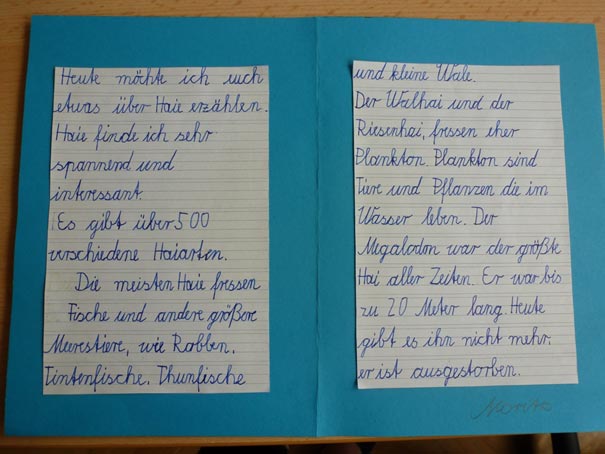 Heute möchte ich euch
etwas über Haie erzählen.
Haie finde ich sehr
spannend und
interessant.
Es gibt über 500
verschiedene Haiarten.
Die meisten Haie fressen
Fische und andere größere
Meerestiere, wie Robben,
Tintenfische, Thunfische
und kleine Wale.
Der Walhai und der
Riesenhai, fressen eher
Plankton. Plankton sind
Tiere und Pflanzen die im
Wasser leben. Der
Megalodon war der größte
Hai aller Zeiten. Er war bis
zu 20 Meter lang. Heute
gibt es ihn nicht mehr,
er ist ausgestorben.
Moritz